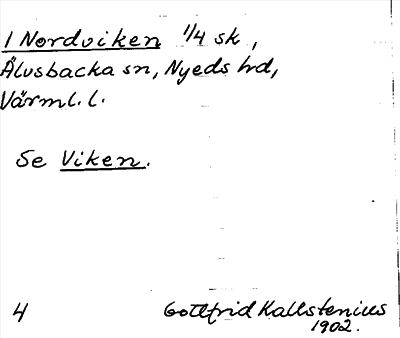 1 Nordviken 1/4 sk,
Älvsbacka sn, Nyeds hd,
Värml. l.
Se Viken.
4 Gottfrid Kallstenius
1902.